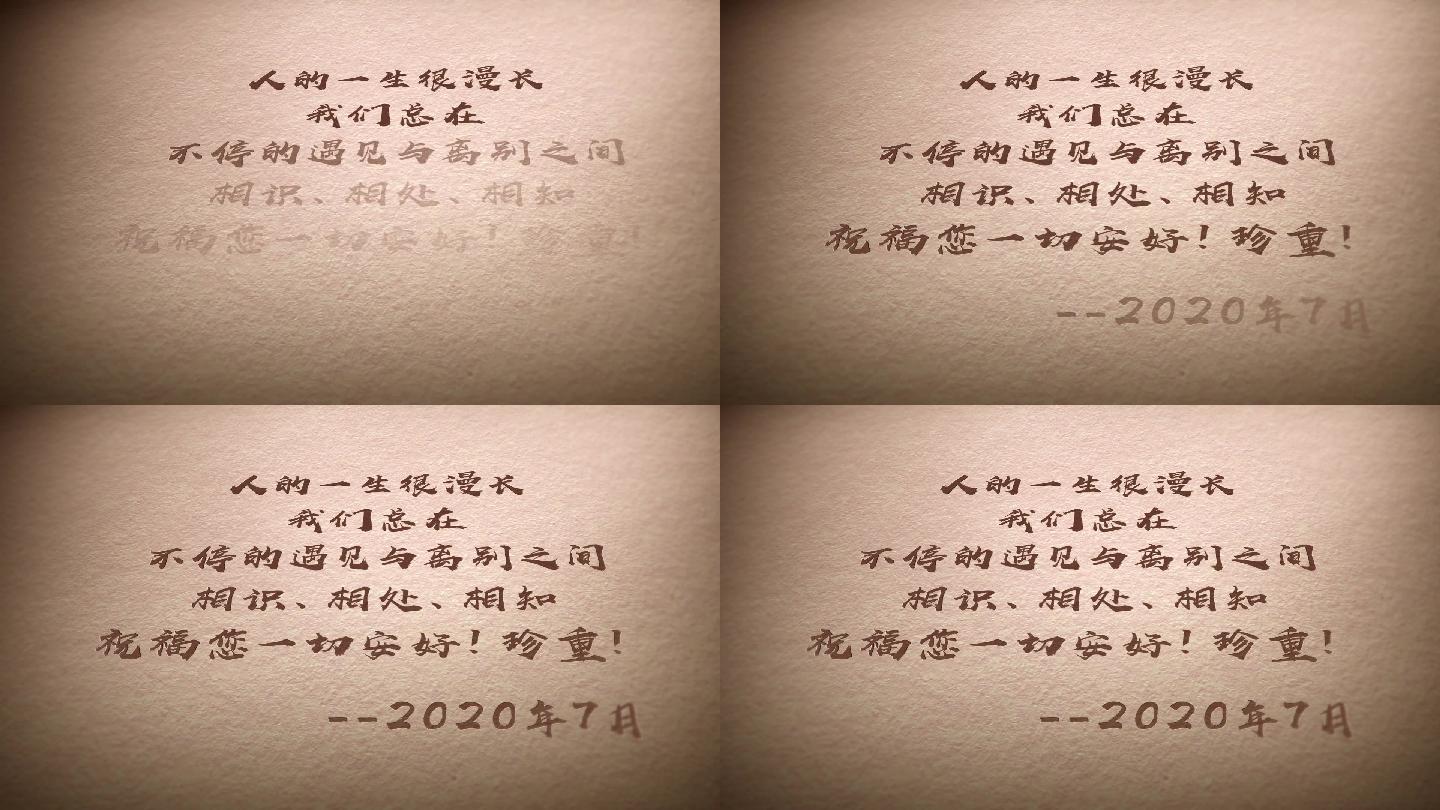 人的一生很漫长
我们总在
不停的遇见与离别之间
相识、相处、相知
祝福您一切安好！珍重！
人的一生很漫长
我们总在
不停的遇见与离别之间
相识、相处、相知
祝福您一切安好！珍重！
--2020年7月
人的一生很漫长
我们总在
不停的遇见与离别之间
相识、相处、相知
祝福您一切安好！珍重！
--2020年7月
人的一生很漫长
我们总在
不停的遇见与离别之间
相识、相处、相知
祝福您一切安好！珍重！
--2020年7月